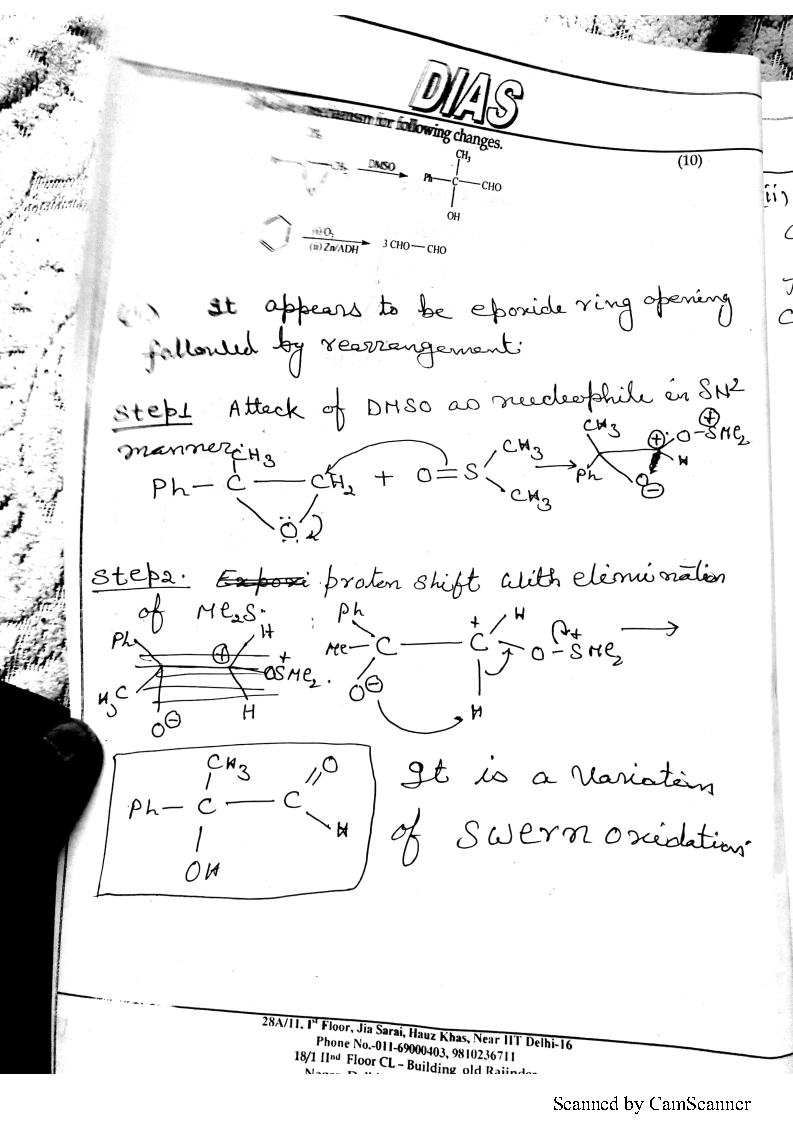 DIAS
for following changes.
(10)
CH₃
DMSO
Ph—C—CHO
OH
(i) O₃
(ii) Zn/ADH
3 CHO—CHO
ii)
It appears to be epoxide ring opening
followed by rearrangement:
Step1 Attack of DMSO as nucleophile in SN²
manner:
CH₃
Ph— C — CH₂ + O=S CH₃ CH₃
Ö
CH₃ Ph ⊕ O—SMe₂ ⊕ H O⊖
Step2. proton shift with elimination
of Me₂S.
Ph H₃C O⊖ ⊕ H OSMe₂ + H
Ph Me—C — C + H O—SMe₂ + O⊖ H
CH₃ O
Ph— C — C H
OH
It is a variation
of Swern oxidation.
28A/11, Iˢᵗ Floor, Jia Sarai, Hauz Khas, Near IIT Delhi-16
Phone No.-011-69000403, 9810236711
18/1 IIⁿᵈ Floor CL – Building old Rajinder
Scanned by CamScanner